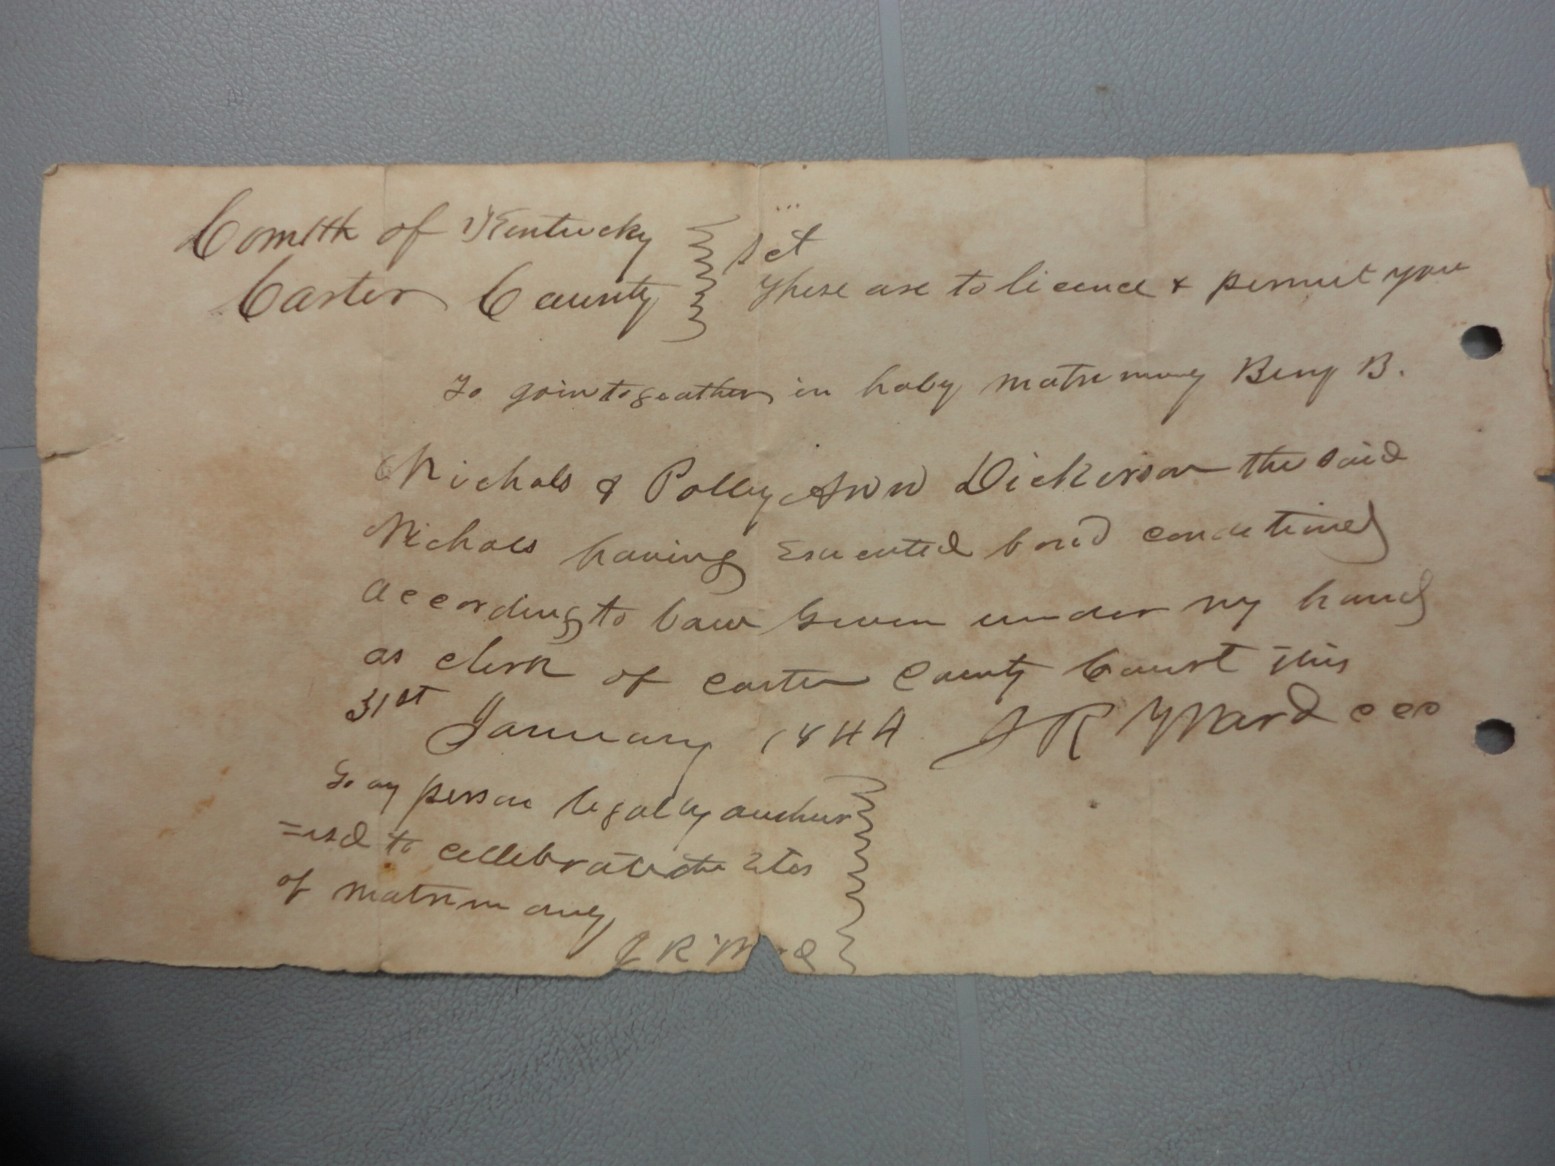 Comlth of Kentucky } Sct
Carter County } These are to licence & permit you
To join togeather in holy matrimony Benj B.
Nichols & Polly Ann Dickerson the said
Nichols having Executed bond conditioned
according to law Given under my hand
as clerk of Carter County Court this
31st January 1844 J R Ward ccc
To any person legally author
=ised to cellebrate the rites
of matrimony
J R Ward